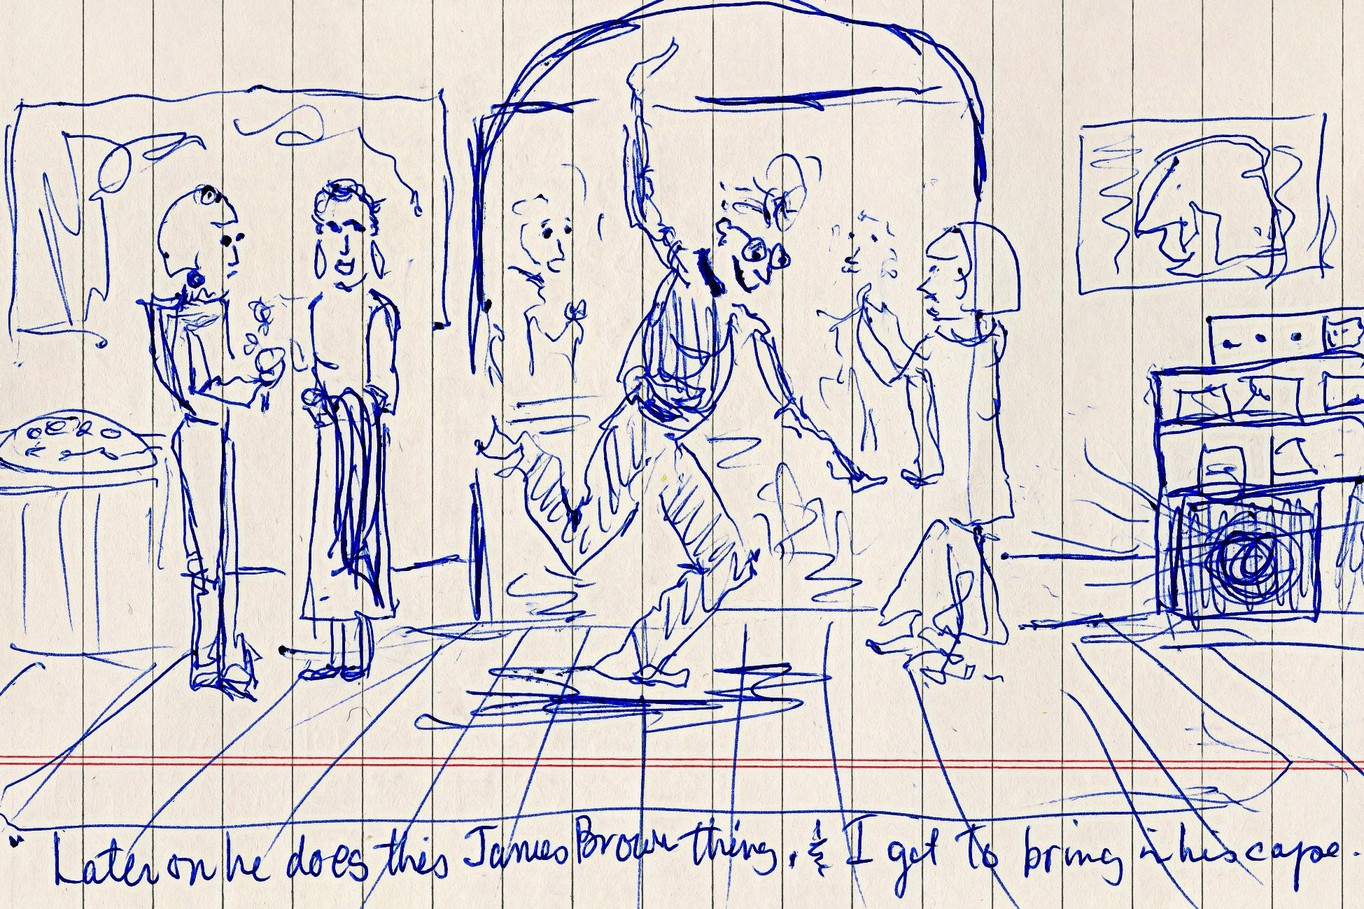 "Later on he does this James Brown thing, & I get to bring in his cape.